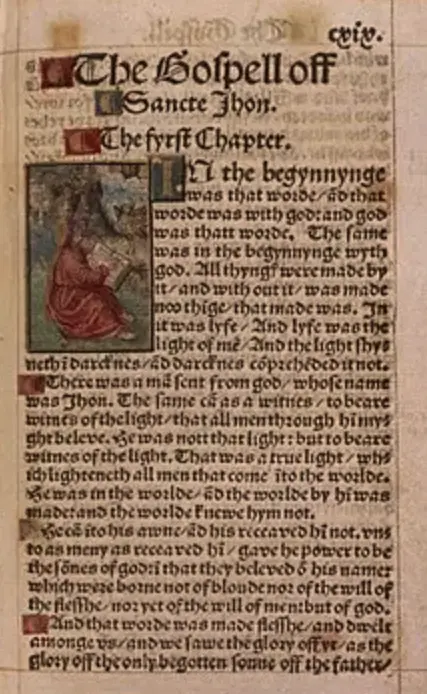 cxix.
The Gospell off
Sancte Jhon.
The fyrst Chapter.
IN the begynnynge
was that worde/ ād that
worde was with god: and god
was thatt worde. The same
was in the begynnynge wyth
god. All thyngs were made by
it/ and with out it/ was made
noo thige/ that made was. In
it was lyfe/ And lyfe was the
light of mē/ And the light shy‍s
neth ī darcknes/ ād darcknes cōprehēded it not.
There was a mā sent from god/ whose name
was Jhon. The same cā as a witnes/ to beare
witnes of the light/ that all men through hī mys
ght beleve. He was nott that light: but to beare
witnes of the light. That was a true light/ whs
ich lighteneth all men that come īto the worlde.
He was in the worlde/ ād the worlde by hī was
made: and the worlde knewe hym not.
He cā īto his awne/ ād his receaved hī not. vns
to as meny as receaved hī/ gave he power to be
the sōnes of god: ī that they beleved ō his name:
which were borne not of bloude nor of the will of
the flesshe/ nor yet of the will of men: but of god.
And that worde was made flesshe/ and dwelt
amonge vs/ and we sawe the glory off yt/ as the
glory off the only begotten sonne off the father/